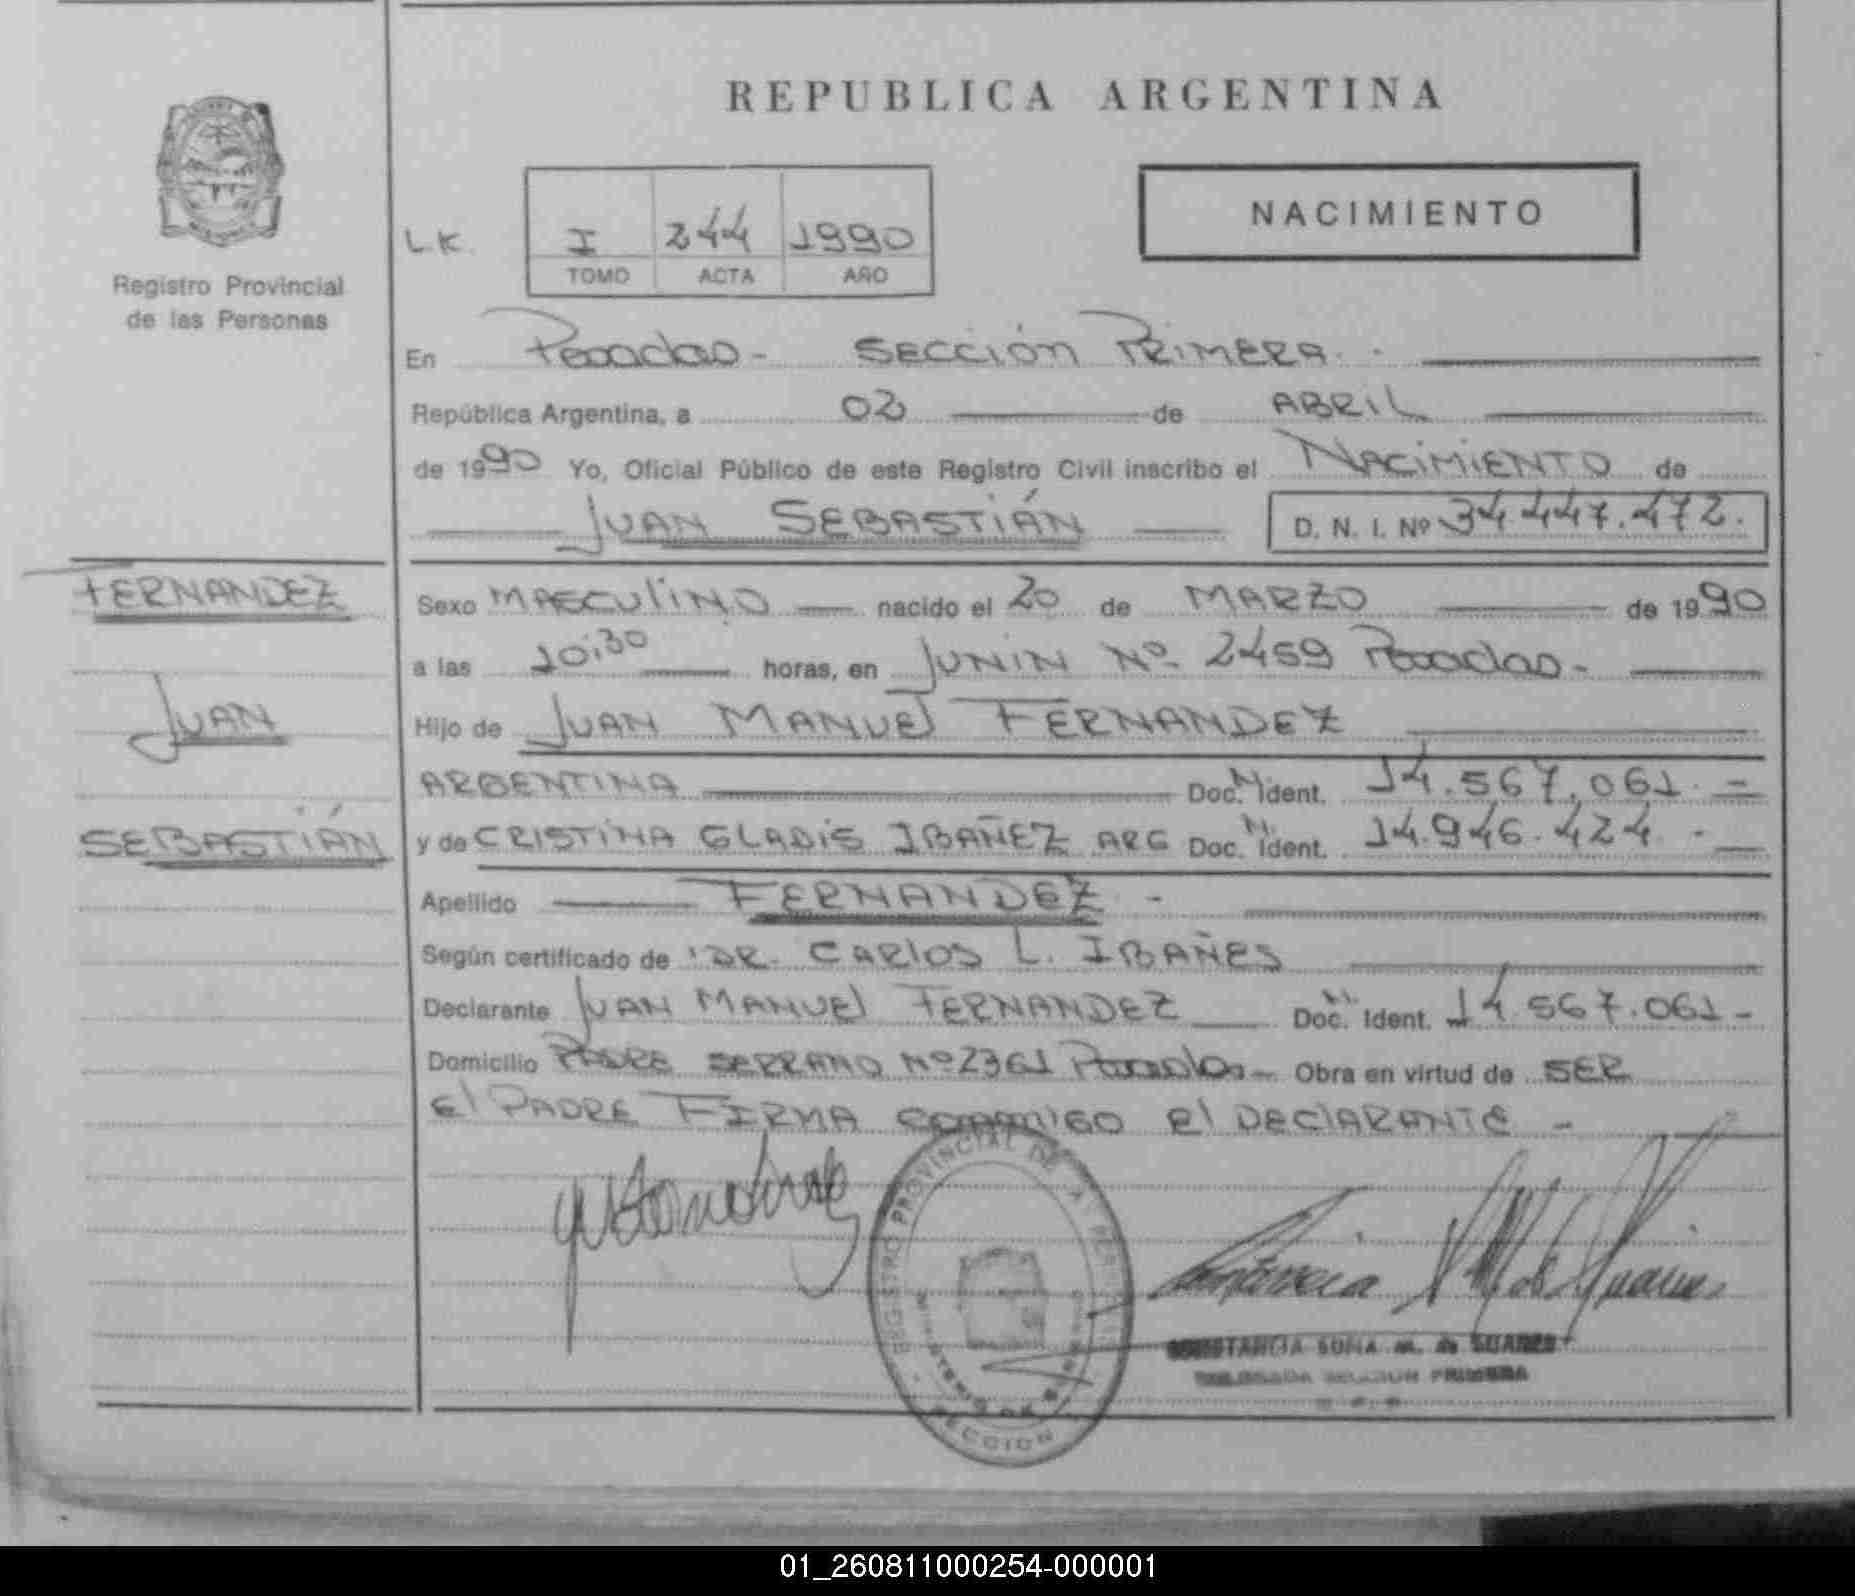 REPUBLICA ARGENTINA
Registro Provincial
de las Personas
LK.
I 244 1990
TOMO ACTA AÑO
NACIMIENTO
En Posadas - SECCIÓN PRIMERA.
República Argentina, a 02 de ABRIL
de 1990 Yo, Oficial Público de este Registro Civil inscribo el NACIMIENTO de
JUAN SEBASTIÁN D. N. I. Nº 34.447.472.
FERNANDEZ
JUAN
SEBASTIÁN
Sexo MASCULINO nacido el 20 de MARZO de 1990
a las 10:30 horas, en JUNIN Nº 2459 Posadas -
Hijo de JUAN MANUEL FERNANDEZ
ARGENTINA Doc. N. Ident. 14.567.061. -
y de CRISTINA GLADIS IBAÑEZ ARG Doc. N. Ident. 14.946.424. -
Apellido FERNANDEZ -
Según certificado de DR. CARLOS L. IBAÑES
Declarante JUAN MANUEL FERNANDEZ Doc. N. Ident. 14.567.061 -
Domicilio PADRE SERRANO Nº 2361 Posadas - Obra en virtud de SER
El PADRE FIRMA CONMIGO El DECLARANTE -
REGISTRO PROVINCIAL DE LAS PERSONAS
MINISTERIO DE
SECCION
CONSTANCIA SOFIA M. de SUAREZ
DELEGADA SECCION PRIMERA
01_260811000254-000001